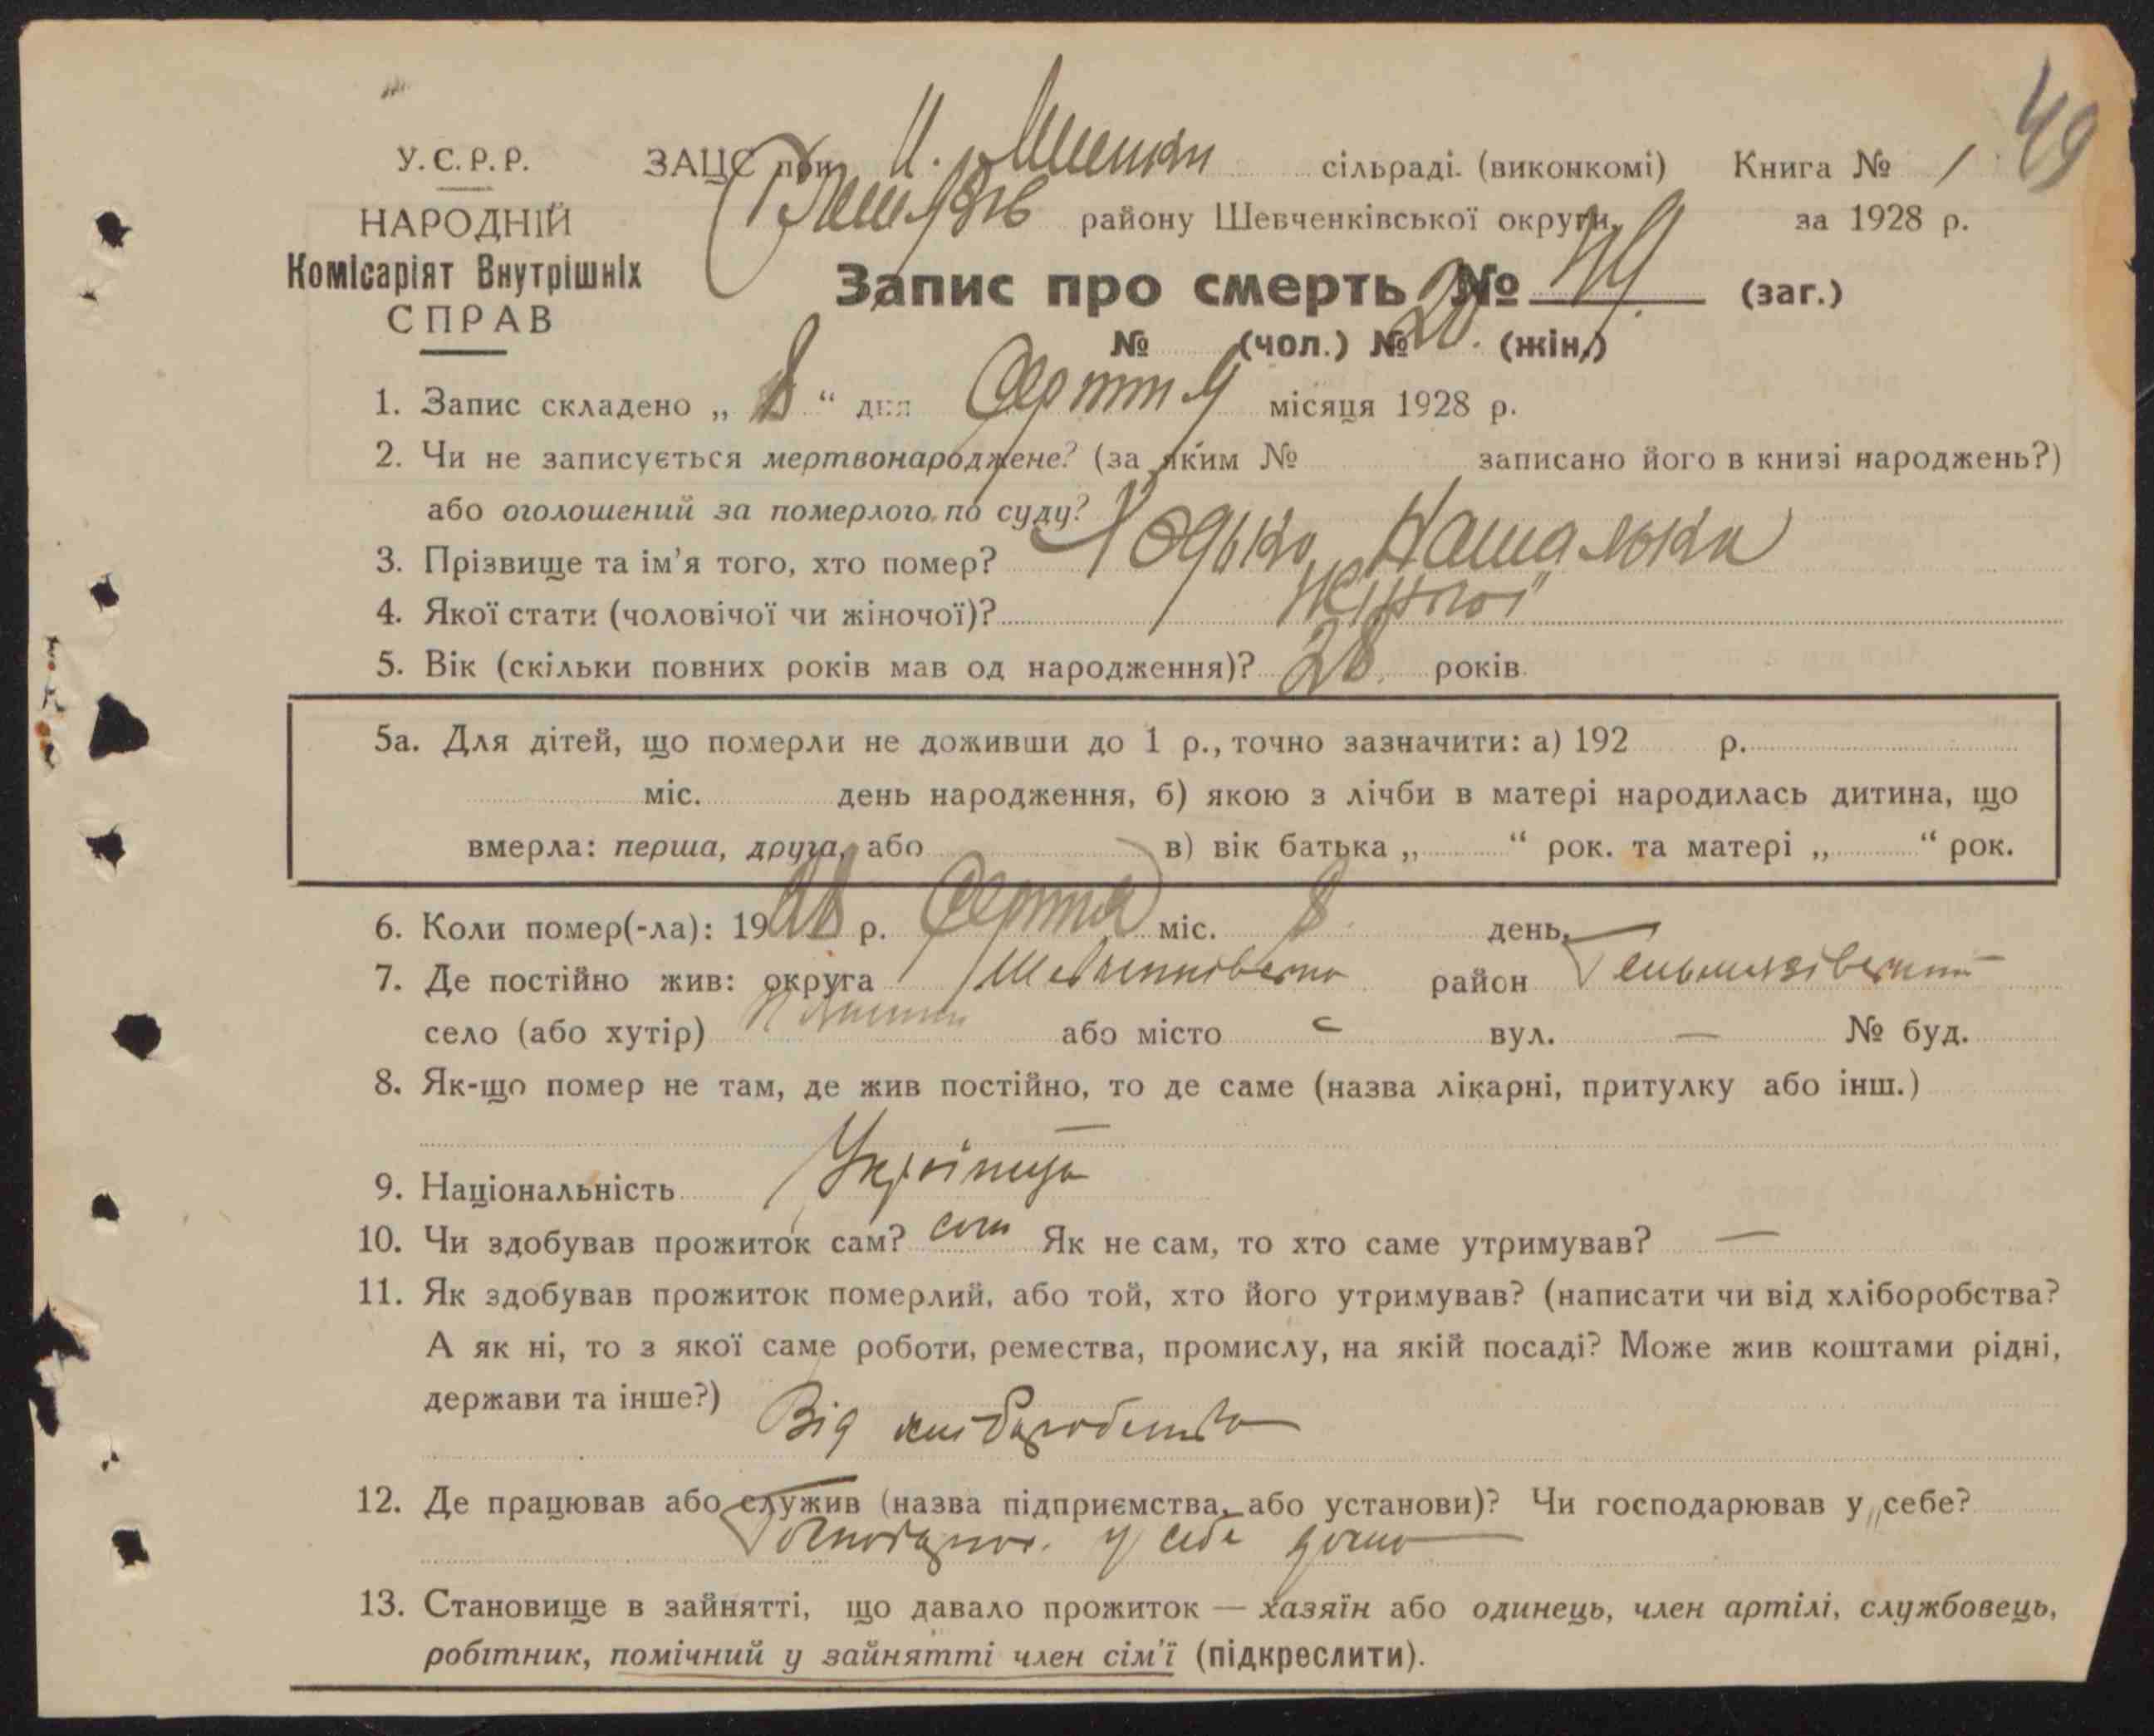 49
У.С.Р.Р. ЗАЦС при сільраді (виконкомі) Книга № 1
НАРОДНІЙ району Шевченківської округи за 1928 р.
Комісаріят Внутрішніх
СПРАВ
Запис про смерть № 49 (заг.)
№ (чол.) № 20. (жін.)
1. Запис складено „ 8 “ дня Серпня місяця 1928 р.
2. Чи не записується мертвонароджене? (за яким № записано його в книзі народжень?)
або оголошений за померлого по суду?
3. Прізвище та ім'я того, хто помер? Наталька
4. Якої стати (чоловічої чи жіночої)? жіночої
5. Вік (скільки повних років мав од народження)? 28. років
5а. Для дітей, що померли не доживши до 1 р., точно зазначити: а) 192 р.
міс. день народження, б) якою з лічби в матері народилась дитина, що
вмерла: перша, друга, або в) вік батька „ “ рок. та матері „ “ рок.
6. Коли помер(-ла): 1928 р. Серпня міс. 8 день
7. Де постійно жив: округа Шевченківська район Гельмязівський
село (або хутір) або місто — вул. — № буд.
8. Як-що помер не там, де жив постійно, то де саме (назва лікарні, притулку або інш.)
—
9. Національність Українка
10. Чи здобував прожиток сам? сам Як не сам, то хто саме утримував? —
11. Як здобував прожиток померлий, або той, хто його утримував? (написати чи від хліборобства?
А як ні, то з якої саме роботи, ремества, промислу, на якій посаді? Може жив коштами рідні,
держави та інше?) Від хліборобства
12. Де працював або служив (назва підприємства, або установи)? Чи господарював у себе?
у себе дома
13. Становище в зайнятті, що давало прожиток — хазяїн або одинець, член артілі, службовець,
робітник, помічний у зайнятті член сім'ї (підкреслити).